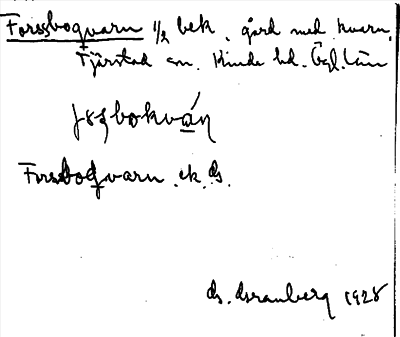 Forssboqvarn 1/2 bek. gård med kvarn,
Tjärstad sn. Kinda hd. Ögl. län
Forssboqvarn ek. ds.
ds. Granberg 1928